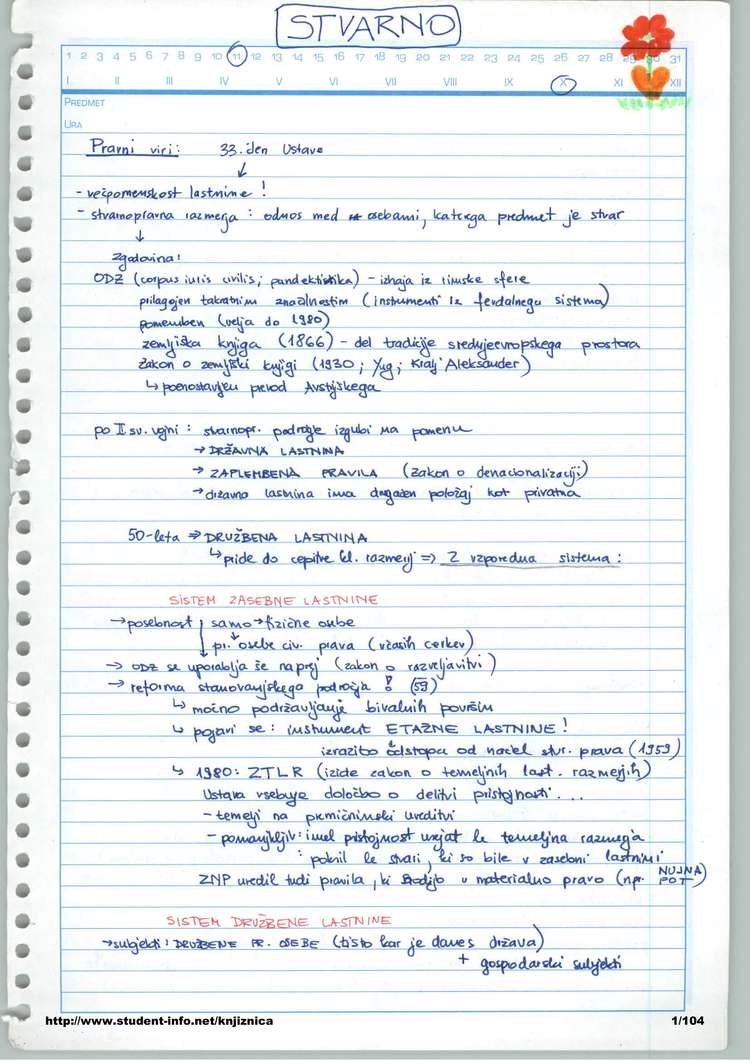 STVARNO
1 2 3 4 5 6 7 8 9 10 11 12 13 14 15 16 17 18 19 20 21 22 23 24 25 26 27 28 29 30 31
I II III IV V VI VII VIII IX X XI XII
PREDMET
URA
Pravni viri: 33. člen Ustave
↓
- večpomenskost lastnine!
- stvarnopravna razmerja: odnos med osebami, katerega predmet je stvar
↓
zgodovina:
ODZ (corpus iuris civilis; pandektistika) - izhaja iz rimske sfere
prilagojen takratnim značilnostim (instrumenti iz fevdalnega sistema)
pomemben (velja do 1980)
zemljiška knjiga (1866) - del tradicije srednjeevropskega prostora
Zakon o zemljiški knjigi (1930; Yug; Kralj Aleksander)
↳ poenostavljen prevod Avstrijskega
po II sv. vojni: stvarnopr. področje izgubi na pomenu
→ DRŽAVNA LASTNINA
→ ZAPLEMBENA PRAVILA (zakon o denacionalizaciji)
→ državna lastnina ima drugačen položaj kot privatna
50-leta ⇒ DRUŽBENA LASTNINA
↳ pride do cepitve l. razmerij ⇒ 2 vzporedna sistema:
SISTEM ZASEBNE LASTNINE
→ posebnost, samo → fizične osebe
pr. osebe civ. prava (včasih cerkev)
→ ODZ se uporablja še naprej (zakon o razveljavitvi)
→ reforma stanovanjskega področja! (59)
↳ močno podržavljanje bivalnih površin
↳ pojavi se: instrument ETAŽNE LASTNINE!
izrazito odstopa od načel stvr. prava (1959)
↳ 1980: ZTLR (izide zakon o temeljnih last. razmerjih)
Ustava vsebuje določbo o delitvi pristojnosti...
- temelji na premičninski ureditvi
- pomanjkljiv: imel pristojnost urejat le temeljna razmerja
: pokril le stvari, ki so bile v zasebni lastnini
ZNP uredil tudi pravila, ki sodijo v materialno pravo (npr. NUJNA POT)
SISTEM DRUŽBENE LASTNINE
→ subjekti: DRUŽBENE PR. OSEBE (tisto kar je danes država)
+ gospodarski subjekti
http://www.student-info.net/knjiznica 1/104